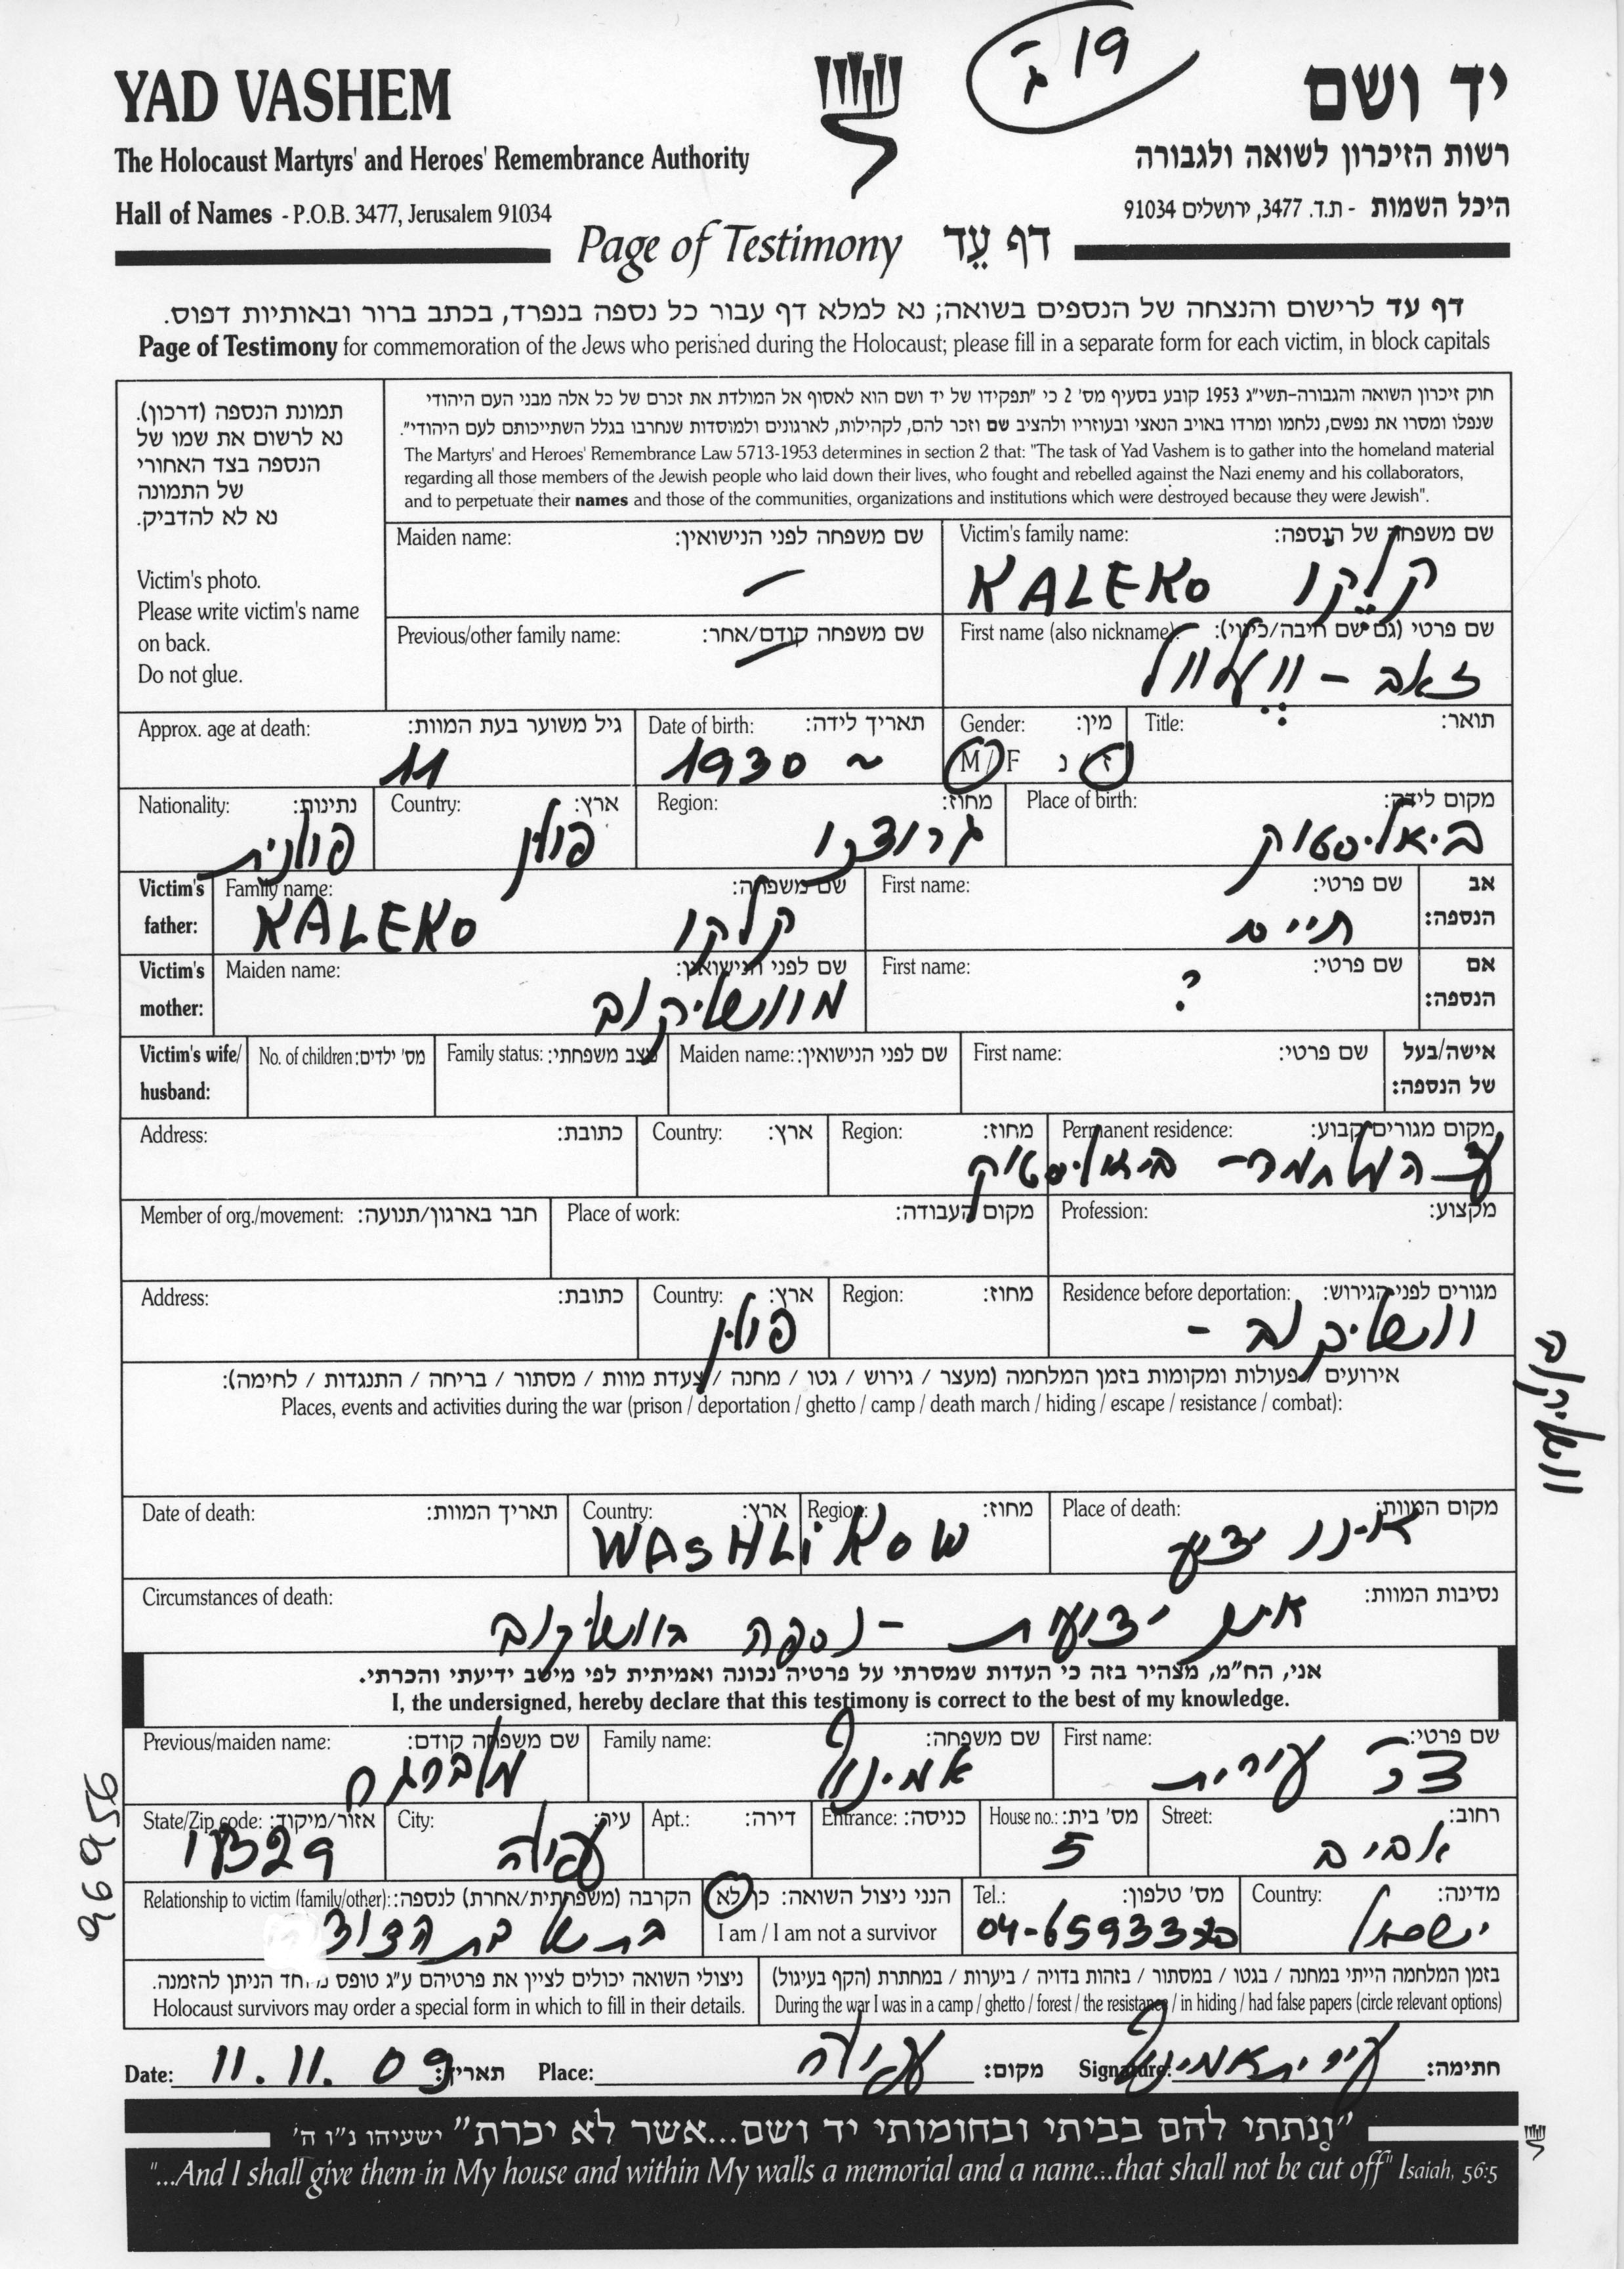 19 ג
YAD VASHEM
יד ושם
The Holocaust Martyrs' and Heroes' Remembrance Authority
רשות הזיכרון לשואה ולגבורה
Hall of Names - P.O.B. 3477, Jerusalem 91034
היכל השמות - ת.ד. 3477, ירושלים 91034
Page of Testimony דף עֵד
דף עד לרישום והנצחה של הנספים בשואה; נא למלא דף עבור כל נספה בנפרד, בכתב ברור ובאותיות דפוס.
Page of Testimony for commemoration of the Jews who perished during the Holocaust; please fill in a separate form for each victim, in block capitals
תמונת הנספה (דרכון).
נא לרשום את שמו של
הנספה בצד האחורי
של התמונה
נא לא להדביק.
Victim's photo.
Please write victim's name
on back.
Do not glue.
חוק זיכרון השואה והגבורה-תשי"ג 1953 קובע בסעיף מס' 2 כי "תפקידו של יד ושם הוא לאסוף אל המולדת את זכרם של כל אלה מבני העם היהודי
שנפלו ומסרו את נפשם, נלחמו ומרדו באויב הנאצי ובעוזריו ולהציב שם וזכר להם, לקהילות, לארגונים ולמוסדות שנחרבו בגלל השתייכותם לעם היהודי".
The Martyrs' and Heroes' Remembrance Law 5713-1953 determines in section 2 that: "The task of Yad Vashem is to gather into the homeland material
regarding all those members of the Jewish people who laid down their lives, who fought and rebelled against the Nazi enemy and his collaborators,
and to perpetuate their names and those of the communities, organizations and institutions which were destroyed because they were Jewish".
Maiden name: שם משפחה לפני הנישואין:
Victim's family name: שם משפחה של הנספה:
KALEKO קלקו
Previous/other family name: שם משפחה קודם/אחר:
First name (also nickname): שם פרטי (גם שם חיבה/כינוי):
זאב - וועלוול
Approx. age at death: גיל משוער בעת המוות:
11
Date of birth: תאריך לידה:
1930 ~
Gender: מין:
M / F ז / נ
Title: תואר:
Nationality: נתינות:
פולנית
Country: ארץ:
פולין
Region: מחוז:
גרודנו
Place of birth: מקום לידה:
ביאליסטוק
Victim's father: אב הנספה:
Family name: שם משפחה:
KALEKO קלקו
First name: שם פרטי:
חיים
Victim's mother: אם הנספה:
Maiden name: שם לפני הנישואין:
מוושליקוב
First name: שם פרטי:
?
Victim's wife/ husband: אישה/בעל של הנספה:
No. of children: מס' ילדים:
Family status: מצב משפחתי:
Maiden name: שם לפני הנישואין:
First name: שם פרטי:
Address: כתובת:
Country: ארץ:
Region: מחוז:
Permanent residence: מקום מגורים קבוע:
עד המלחמה - ביאליסטוק
Member of org./movement: חבר בארגון/תנועה:
Place of work: מקום העבודה:
Profession: מקצוע:
Address: כתובת:
Country: ארץ:
פולין
Region: מחוז:
Residence before deportation: מגורים לפני הגירוש:
וושליקוב -
אירועים / פעולות ומקומות בזמן המלחמה (מעצר / גירוש / גטו / מחנה / צעדת מוות / מסתור / בריחה / התנגדות / לחימה):
Places, events and activities during the war (prison / deportation / ghetto / camp / death march / hiding / escape / resistance / combat):
Date of death: תאריך המוות:
Country: ארץ:
Region: מחוז:
WASHLiKOW
Place of death: מקום המוות:
אינו ידוע
Circumstances of death: נסיבות המוות:
אינן ידועות - נספה בוושליקוב
אני, הח"מ, מצהיר בזה כי העדות שמסרתי על פרטיה נכונה ואמיתית לפי מיטב ידיעתי והכרתי.
I, the undersigned, hereby declare that this testimony is correct to the best of my knowledge.
Previous/maiden name: שם משפחה קודם:
Family name: שם משפחה:
אמינוף
First name: שם פרטי:
עירית
State/Zip code: אזור/מיקוד:
City: עיר:
עפולה
Apt.: דירה:
Entrance: כניסה:
House no.: מס' בית:
5
Street: רחוב:
אביב
Relationship to victim (family/other): הקרבה (משפחתית/אחרת) לנספה:
הנני ניצול השואה: כן/לא
I am / I am not a survivor
Tel.: מס' טלפון:
Country: מדינה:
ישראל
ניצולי השואה יכולים לציין את פרטיהם ע"ג טופס מיוחד הניתן להזמנה.
Holocaust survivors may order a special form in which to fill in their details.
בזמן המלחמה הייתי במחנה / בגטו / במסתור / בזהות בדויה / ביערות / במחתרת (הקף בעיגול)
During the war I was in a camp / ghetto / forest / the resistance / in hiding / had false papers (circle relevant options)
Date: 11.11.09 תאריך:
Place: עפולה מקום:
Signature: עירית אמינוף חתימה:
"וְנתתי להם בביתי ובחומותי יד ושם...אשר לא יכרת" ישעיהו נ"ו ה'
"...And I shall give them in My house and within My walls a memorial and a name...that shall not be cut off" Isaiah, 56:5
969956